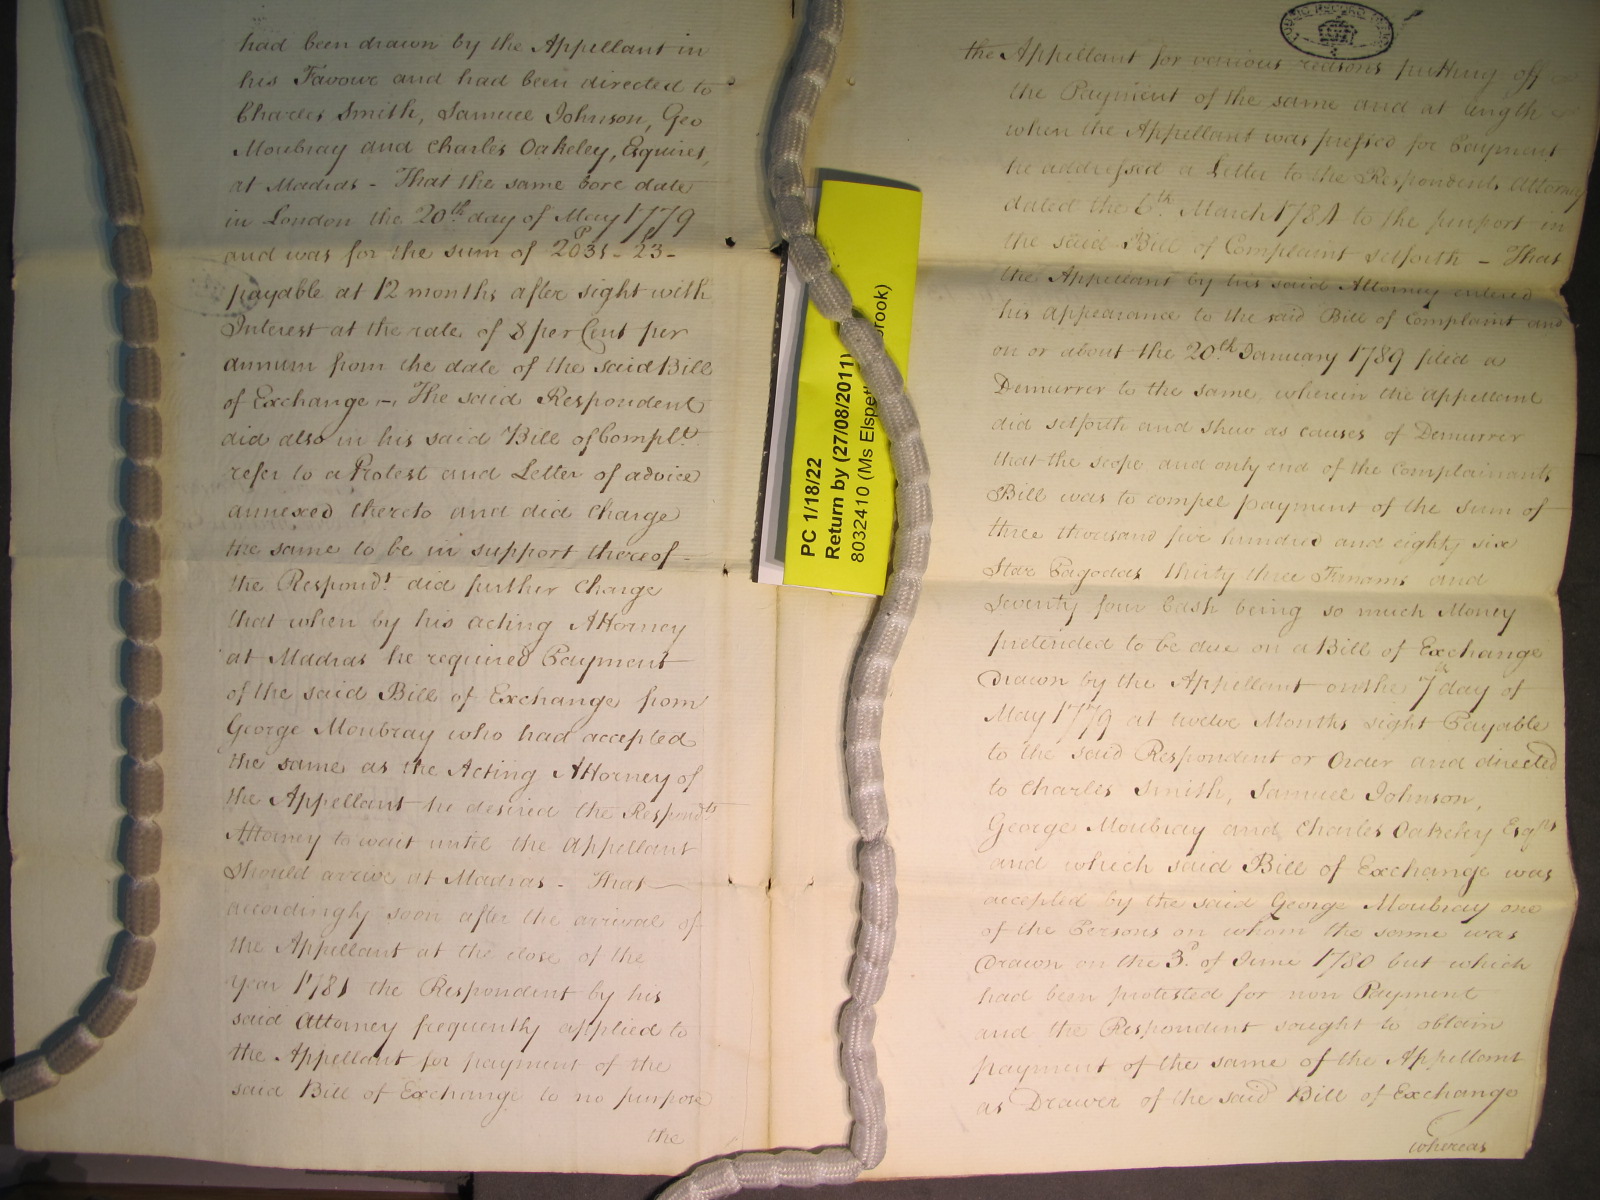 had been drawn by the Appellant in
his Favour and had been directed to
Charles Smith, Samuel Johnson, Geo
Moubray and Charles Oakeley, Esquires,
at Madras - That the same bore date
in London the 20th day of May 1779
and was for the sum of 2031 - 23 -
payable at 12 months after sight with
Interest at the rate of 8 per Cent per
annum from the date of the said Bill
of Exchange -, The said Respondent
did also in his said Bill of Complt.
refer to a Protest and Letter of advice
annexed thereto and did charge
the same to be in support thereof -
the Respondt. did further Charge
that when by his acting Attorney
at Madras he required Payment
of the said Bill of Exchange from
George Moubray who had accepted
the same as the Acting Attorney of
the Appellant he desired the Respondts
Attorney to wait until the Appellant
should arrive at Madras - That
accordingly soon after the arrival of
the Appellant at the close of the
year 1781 the Respondent by his
said Attorney frequently applied to
the Appellant for payment of the
said Bill of Exchange to no purpose
the
PC 1/18/22
Return by (27/08/2011)
8032410 (Ms Elspet rook)
PUBLIC RECORD OFFICE
the Appellant for various reasons putting off
the Payment of the same and at length
when the Appellant was pressed for Payment
he addressed a Letter to the Respondents Attorney
dated the 6th March 1784 to the purport in
the said Bill of Complaint setforth - That
the Appellant by his said Attorney entered
his appearance to the said Bill of Complaint and
on or about the 20th January 1789 filed a
Demurrer to the same, wherein the Appellant
did setforth and shew as causes of Demurrer
that the scope and only end of the Complainants
Bill was to compel payment of the sum of
three thousand five hundred and eighty six
Star Pagodas thirty three Fanams and
Seventy four Cash being so much Money
pretended to be due on a Bill of Exchange
Drawn by the Appellant on the 7th day of
May 1779 at twelve Months sight Payable
to the said Respondent or Order and directed
to Charles Smith, Samuel Johnson,
George Moubray and Charles Oakeley Esqrs
and which said Bill of Exchange was
accepted by the said George Moubray one
of the Persons on whom the same was
Drawn on the 3d. of June 1780 but which
had been protested for non Payment
and the Respondent sought to obtain
payment of the same of the Appellant
as Drawer of the said Bill of Exchange
whereas